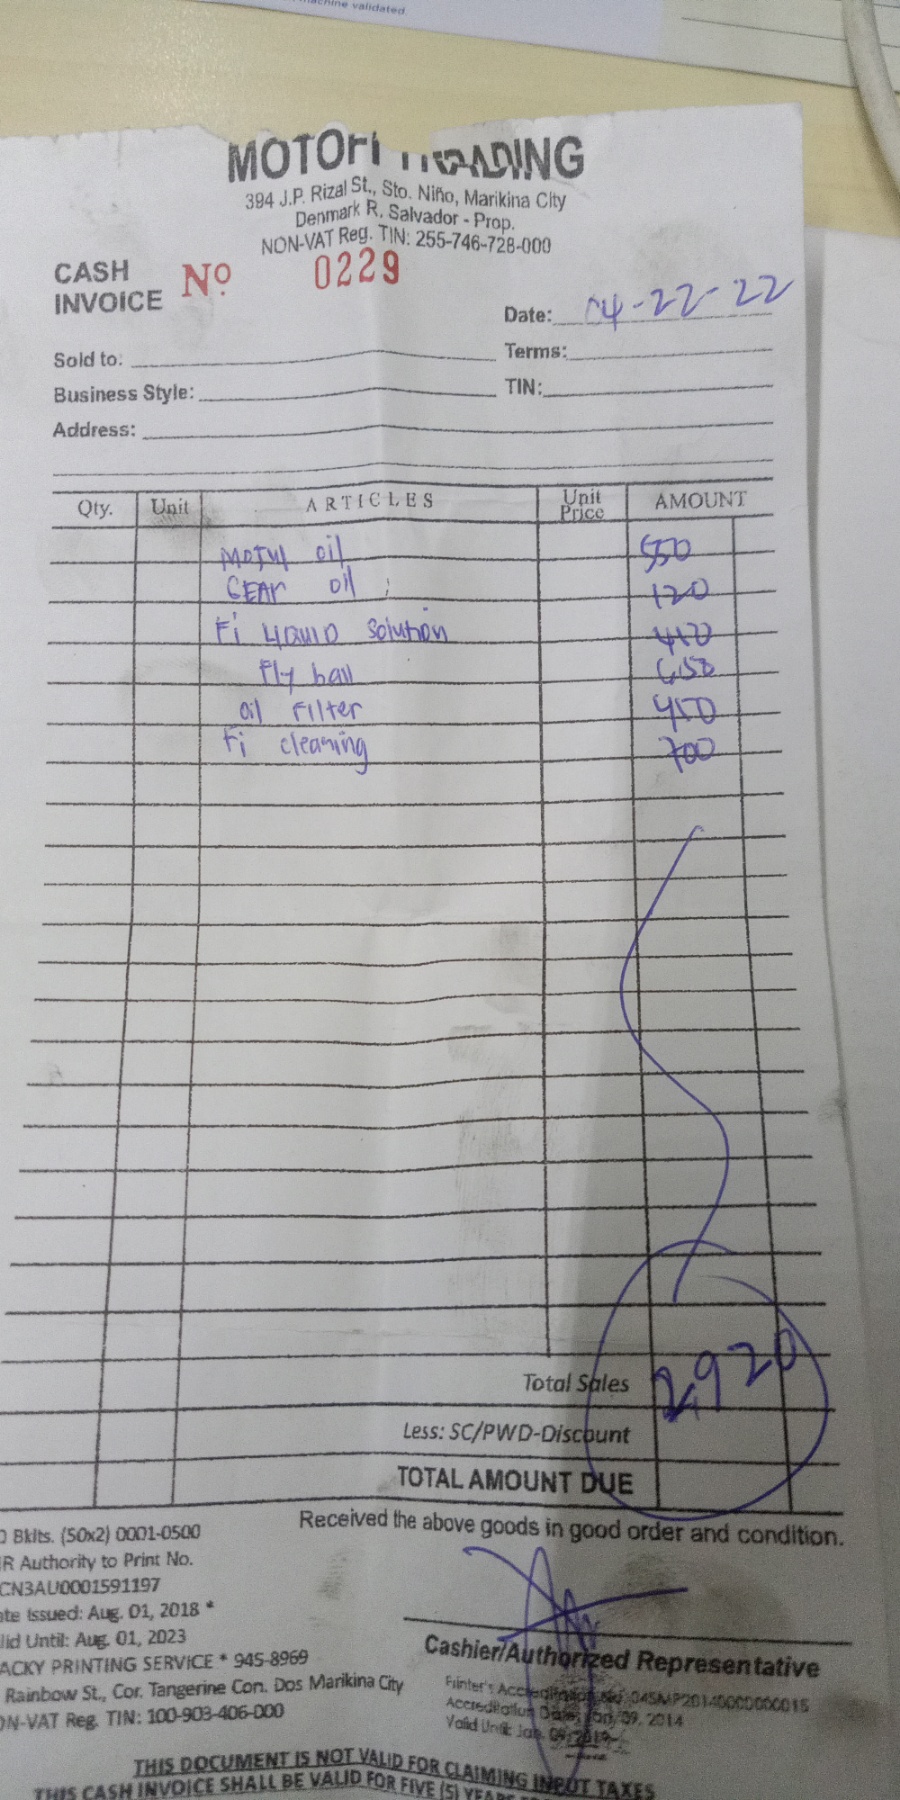 machine validated
TRADING
394 J.P. Rizal St., Sto. Niño, Marikina City
Denmark R. Salvador - Prop.
NON-VAT Reg. TIN: 255-746-728-000
CASH INVOICE Nº 0229
Date: 04-22-22
Sold to: Terms:
Business Style: TIN:
Address:
Qty. Unit ARTICLES Unit Price AMOUNT
MOTUL oil 550
GEAR oil 120
Fi LIQUID Solution
Fly ball 650
oil Filter 450
Fi cleaning 700
Total Sales 2,920
Less: SC/PWD-Discount
TOTAL AMOUNT DUE
Received the above goods in good order and condition.
Bklts. (50x2) 0001-0500
R Authority to Print No.
CN3AU0001591197
te Issued: Aug. 01, 2018 *
lid Until: Aug. 01, 2023
ACKY PRINTING SERVICE * 945-8969
Rainbow St., Cor. Tangerine Con. Dos Marikina City
ON-VAT Reg. TIN: 100-903-406-000
Cashier/Authorized Representative
Printer's Accreditation No. 045MP20140000000015
Accreditation Date: Jan. 09, 2014
Valid Until: Jan. 09, 2019
THIS DOCUMENT IS NOT VALID FOR CLAIMING INPUT TAXES
THIS CASH INVOICE SHALL BE VALID FOR FIVE (5) YEARS